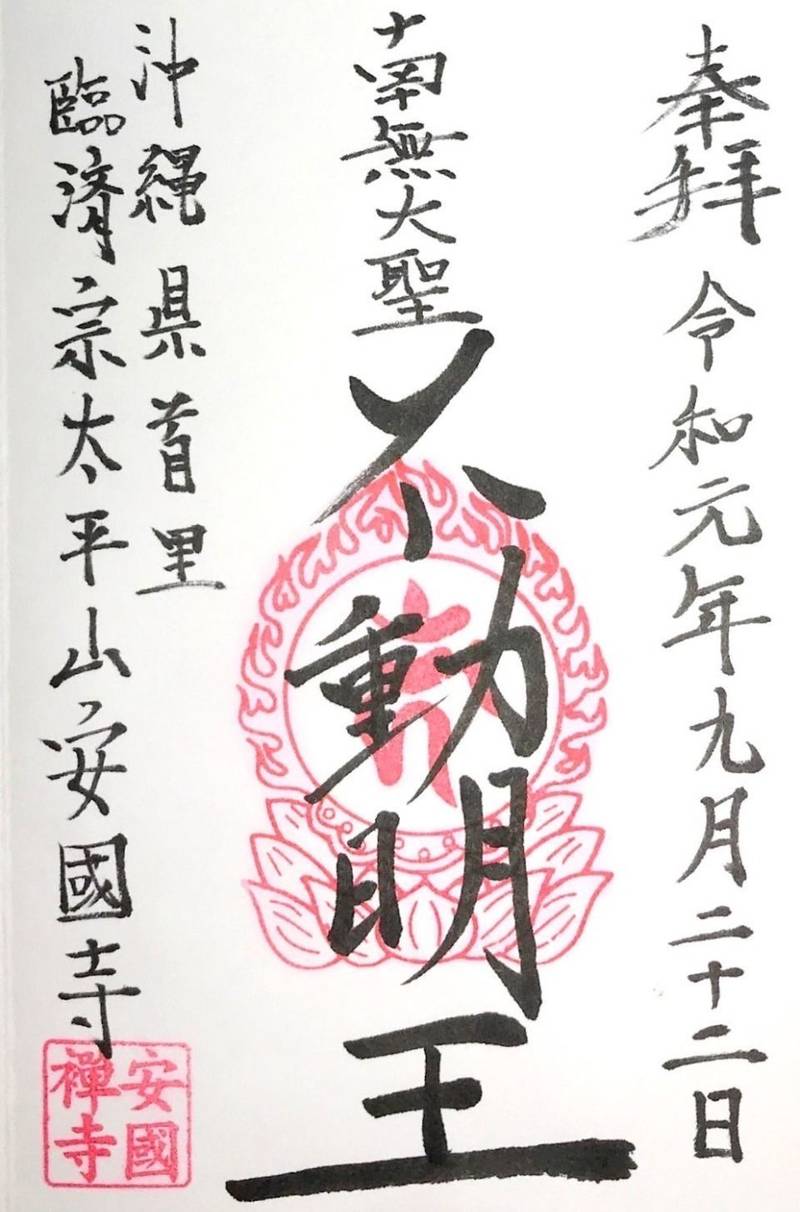 奉拝 令和元年九月二十二日
南無大聖
不動明王
沖縄県首里
臨済宗太平山安國寺
安國
禅寺